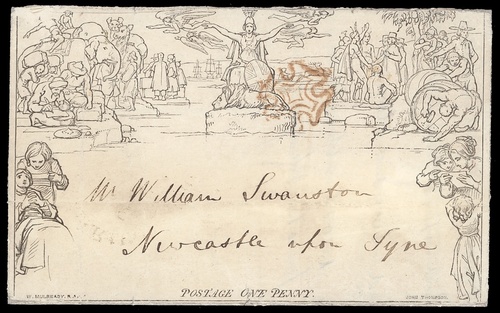 Mr William Swanston
Newcastle upon Tyne
POSTAGE ONE PENNY.
W. MULREADY. R.A.
JOHN THOMPSON.